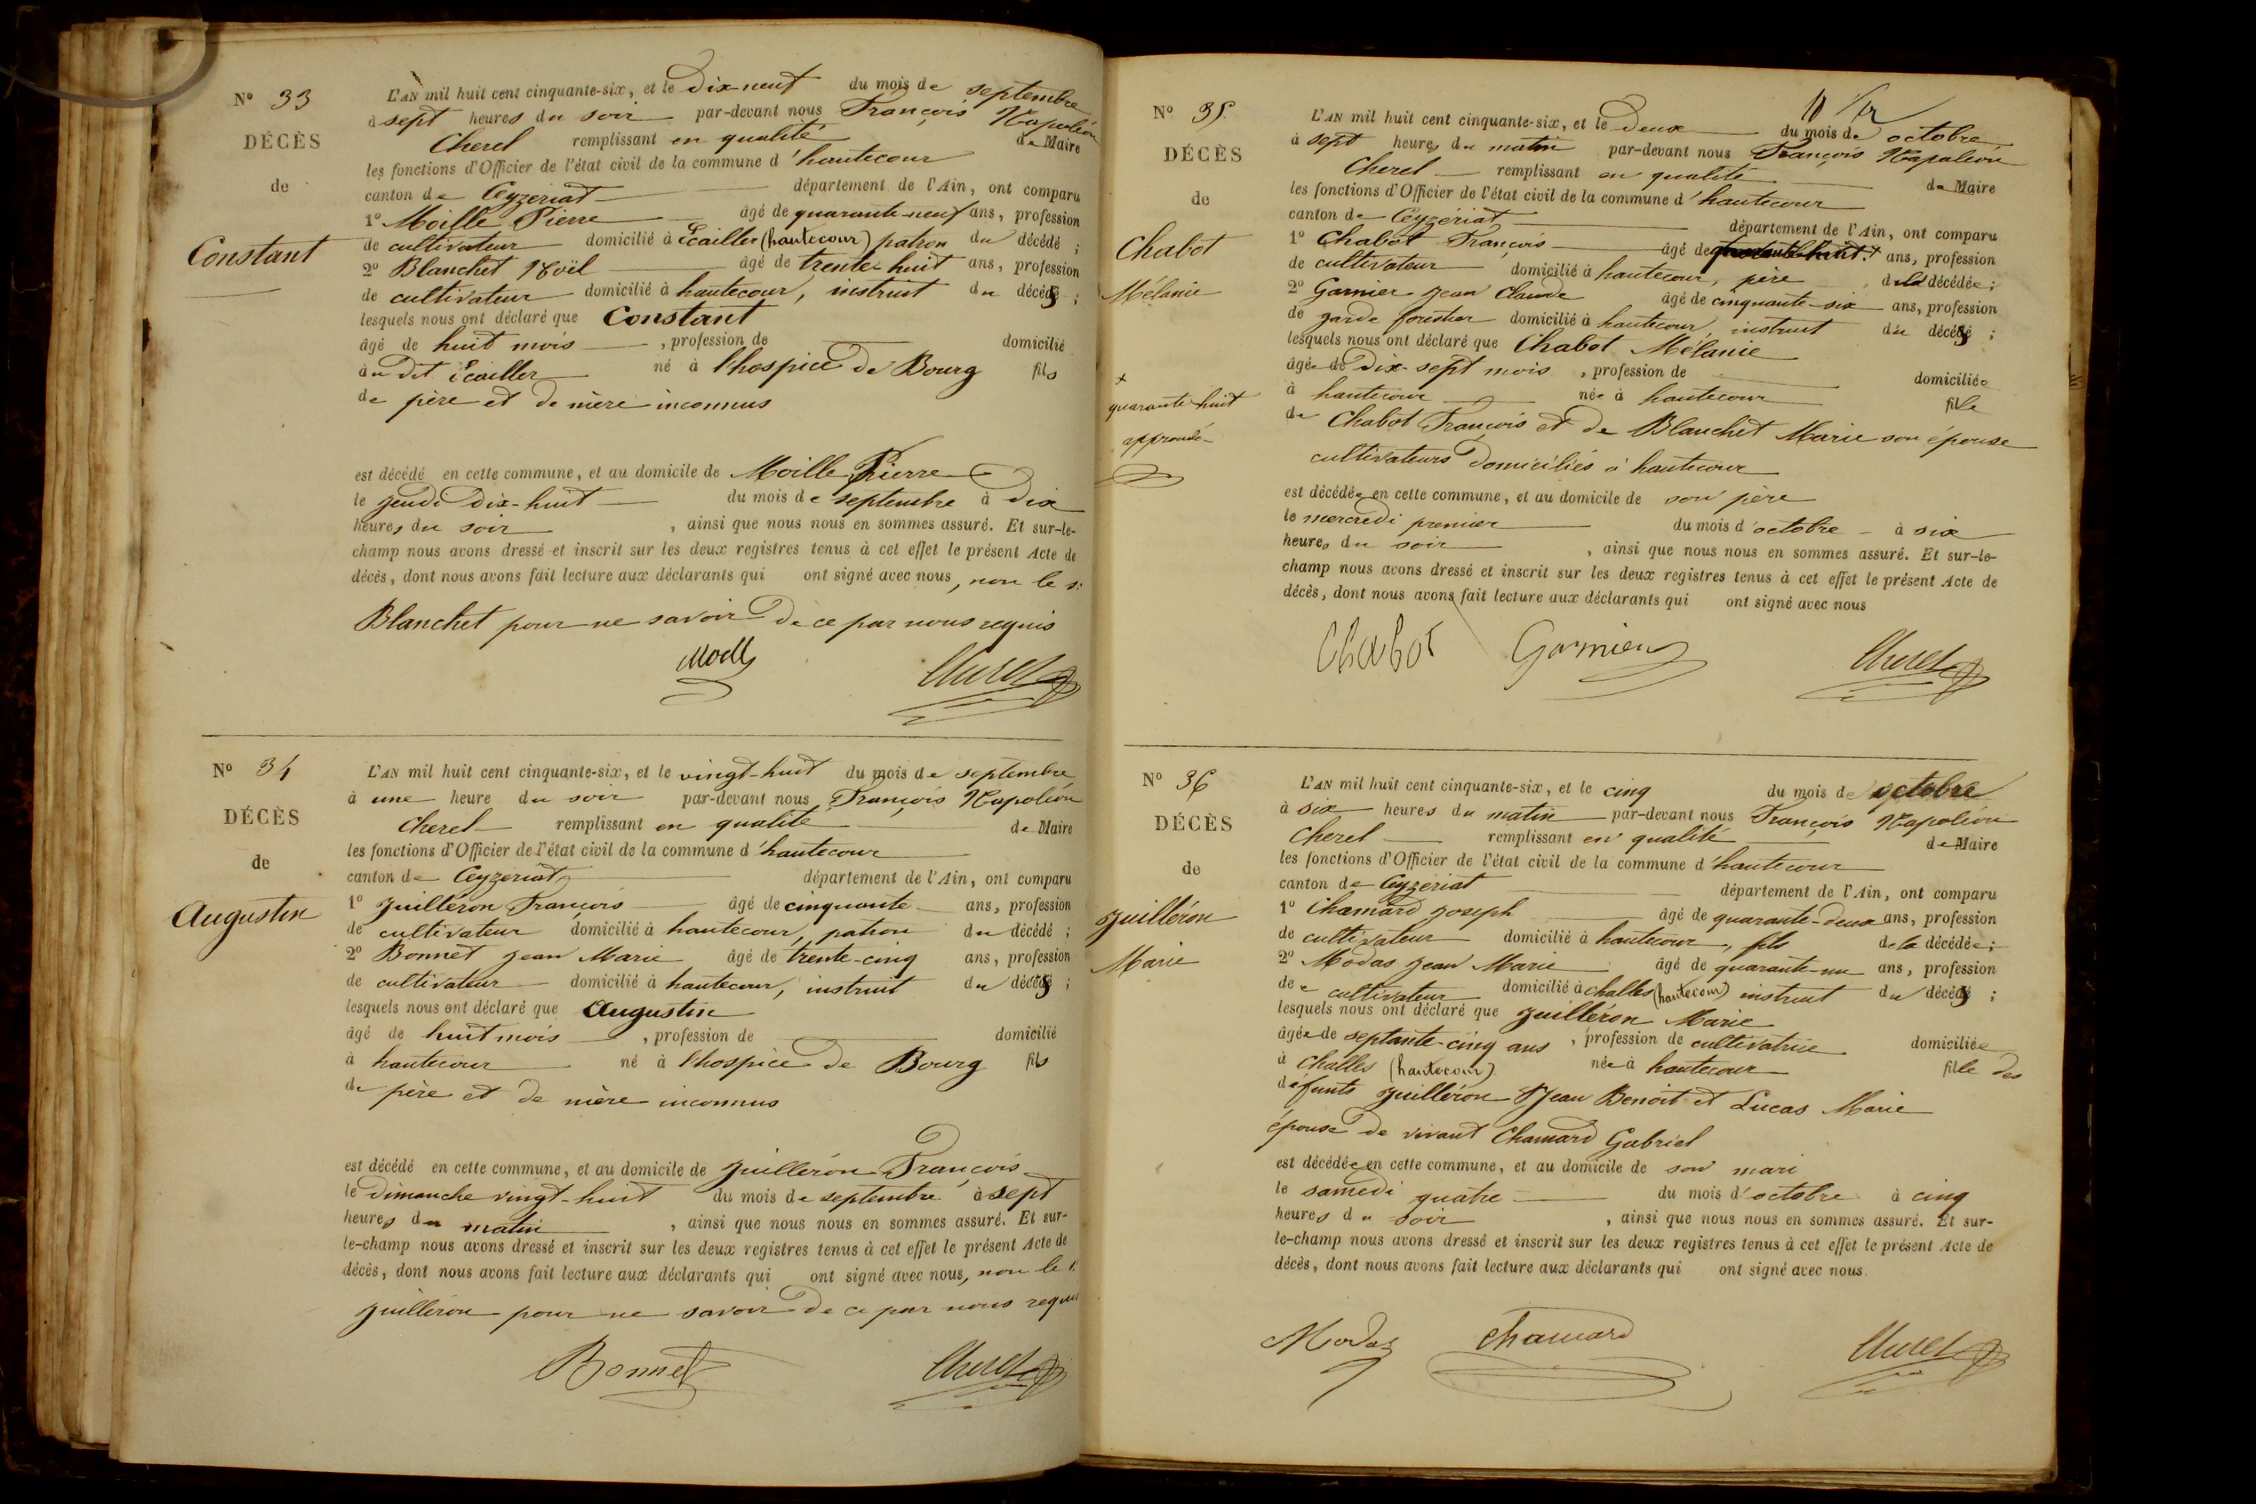 N° 33
DÉCÈS
de
Constant
L'AN mil huit cent cinquante-six, et le Dix-neuf du mois de septembre
à sept heures du soir par-devant nous François Napoléon
Cherel remplissant en qualité de Maire
les fonctions d'Officier de l'état civil de la commune d'hautecour
canton de Ceyzeriat département de l'Ain, ont comparu
1° Moille Pierre âgé de quarante-neuf ans, profession
de cultivateur domicilié à Ecailler (hautecour) patron du décédé ;
2° Blanchet Noël âgé de trente-huit ans, profession
de cultivateur domicilié à hautecour, instruit du décés ;
lesquels nous ont déclaré que Constant
âgé de huit mois , profession de domicilié
au dit Ecailler né à l'hospice De Bourg fils
de père et de mère inconnus
est décédé en cette commune, et au domicile de Moille Pierre
le jeudi Dix-huit du mois de septembre à Dix
heures du soir , ainsi que nous nous en sommes assuré. Et sur-le-
champ nous avons dressé et inscrit sur les deux registres tenus à cet effet le présent Acte de
décès, dont nous avons fait lecture aux déclarants qui ont signé avec nous, non le s.
Blanchet pour ne savoir De ce par nous requis
Cherel
N° 34
DÉCÈS
de
Augustin
L'AN mil huit cent cinquante-six, et le vingt-huit du mois de septembre
à une heure du soir par-devant nous François Napoléon
Cherel remplissant en qualité de Maire
les fonctions d'Officier de l'état civil de la commune d'hautecour
canton de Ceyzeriat département de l'Ain, ont comparu
1° Juilleron François âgé de cinquante ans, profession
de cultivateur domicilié à hautecour, patron du décédé ;
2° Bonnet Jean Marie âgé de trente-cinq ans, profession
de cultivateur domicilié à hautecour, instruit du décés ;
lesquels nous ont déclaré que Augustin
âgé de huit mois , profession de domicilié
à hautecour né à l'hospice de Bourg fils
de père et de mère inconnus
est décédé en cette commune, et au domicile de Juilléron François
le Dimanche vingt-huit du mois de septembre à sept
heures du matin , ainsi que nous nous en sommes assuré. Et sur-
le-champ nous avons dressé et inscrit sur les deux registres tenus à cet effet le présent Acte de
décès, dont nous avons fait lecture aux déclarants qui ont signé avec nous, non le
Juilléron pour ne savoir De ce par nous requis
Bonnet Cherel
N° 35
DÉCÈS
de
Chabot
Mélanie
+
quarante-huit
approuvé
L'AN mil huit cent cinquante-six, et le Deux du mois de octobre
à sept heures du matin par-devant nous François Napoléon
Cherel remplissant en qualité de Maire
les fonctions d'Officier de l'état civil de la commune d'hautecour
canton de Ceyzériat département de l'Ain, ont comparu
1° Chabot François âgé de + ans, profession
de cultivateur domicilié à hautecour, père de la décédée ;
2° Garnier Jean Claude âgé de cinquante-six ans, profession
de garde forestier domicilié à hautecour, instruit du décés ;
lesquels nous ont déclaré que Chabot Mélanie
âgée de Dix-sept mois , profession de domiciliée
à hautecour née à hautecour fille
de Chabot François et de Blanchet Marie son épouse
cultivateurs Domiciliés à hautecour
est décédée en cette commune, et au domicile de son père
le mercredi premier du mois d'octobre à six
heures du soir , ainsi que nous nous en sommes assuré. Et sur-le-
champ nous avons dressé et inscrit sur les deux registres tenus à cet effet le présent Acte de
décès, dont nous avons fait lecture aux déclarants qui ont signé avec nous
Chabot Garnier Cherel
N° 36
DÉCÈS
de
Juilléron
Marie
L'AN mil huit cent cinquante-six, et le cinq du mois de octobre
à six heures du matin par-devant nous François Napoléon
Cherel remplissant en qualité de Maire
les fonctions d'Officier de l'état civil de la commune d'hautecour
canton de Ceyzériat département de l'Ain, ont comparu
1° Chamard Joseph âgé de quarante-deux ans, profession
de cultivateur domicilié à hautecour, fils de la décédée ;
2° Modas Jean Marie âgé de quarante-un ans, profession
de cultivateur domicilié à challes (hautecour) instruit du décés ;
lesquels nous ont déclaré que Juilleron Marie
âgée de septante-cinq ans , profession de cultivatrice domiciliée
à Challes (hautecour) née à hautecour fille des
défunts Juilléron Jean Benoit et Lucas Marie
épouse de vivant Chamard Gabriel
est décédée en cette commune, et au domicile de son mari
le samedi quatre du mois d'octobre à cinq
heures du soir , ainsi que nous nous en sommes assuré. Et sur-
le-champ nous avons dressé et inscrit sur les deux registres tenus à cet effet le présent Acte de
décès, dont nous avons fait lecture aux déclarants qui ont signé avec nous.
Modas Chamard Cherel